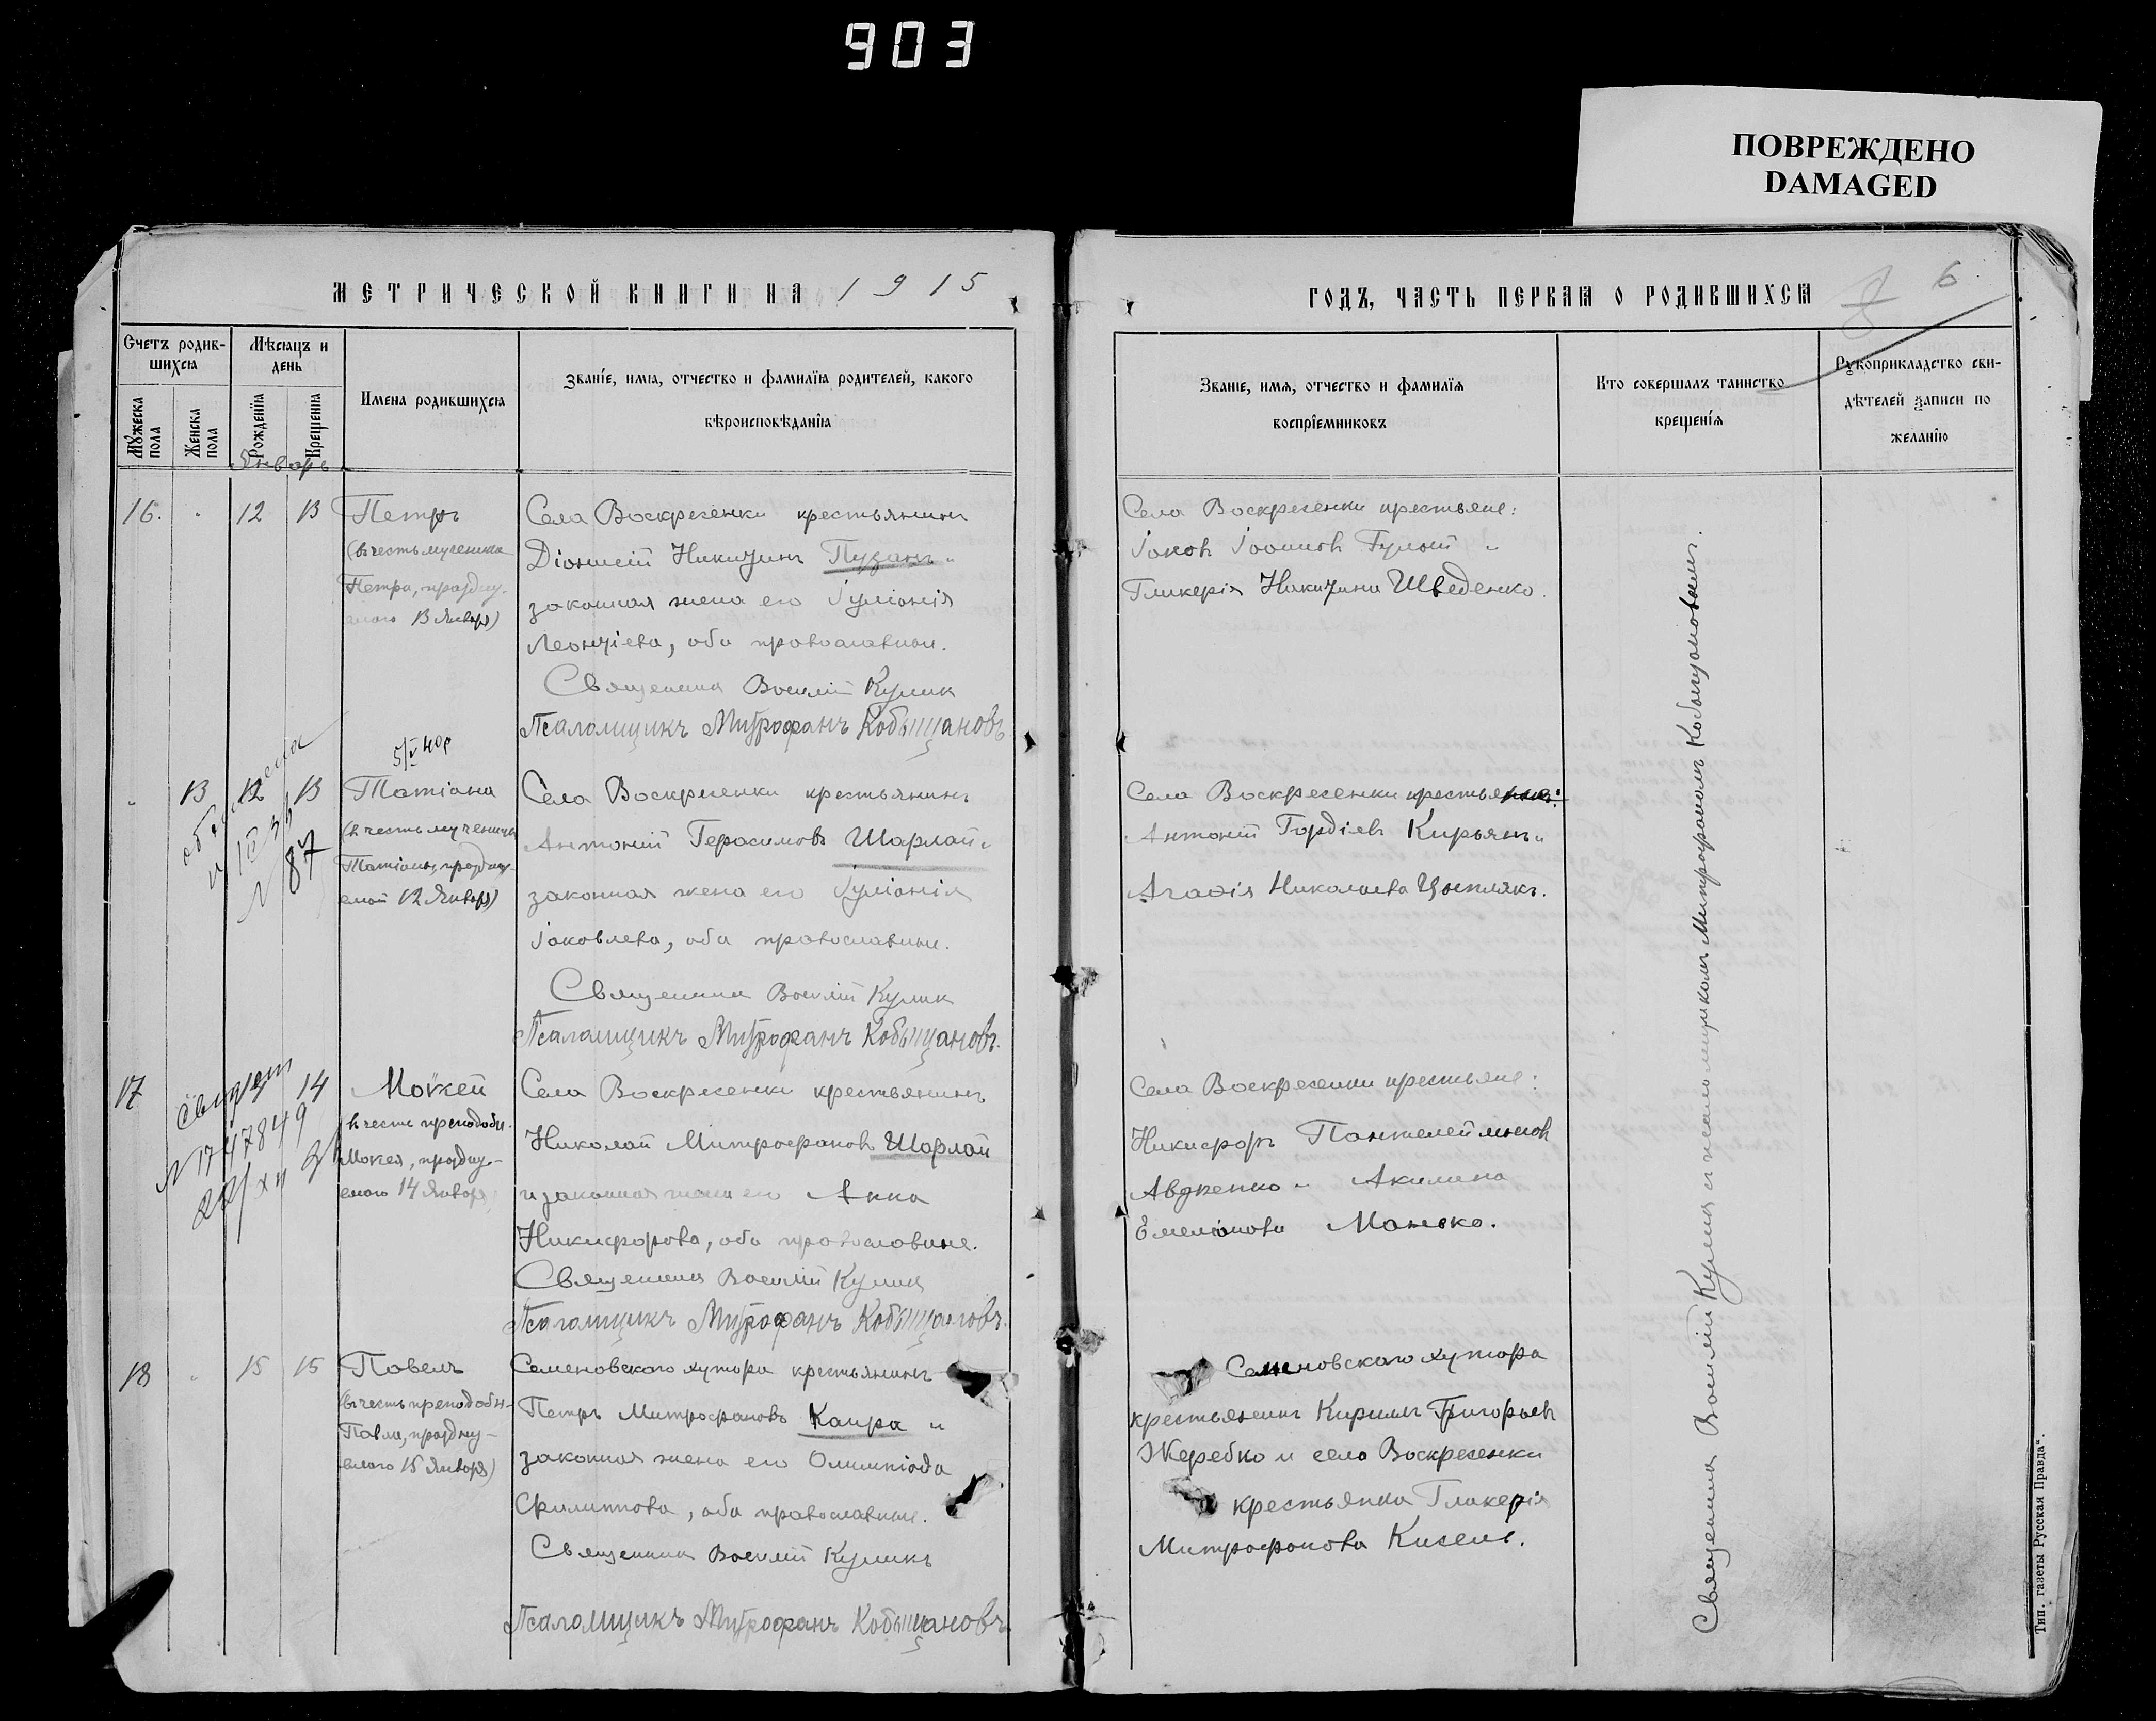 903
ПОВРЕЖДЕНО
DAMAGED
МЕТРИЧЕСКОЙ КНИГИ НА 1915
Счетъ родив-
шихся
Мѣсяцъ и
день
Имена родившихся
Званіе, имя, отчество и фамилія родителей, какого
вѣроисповѣданія
Мужеска пола
Женска пола
Рожденія
Крещенія
Январь
16. 12 13 Петръ
(въ честь мученика
Петра, праздну-
емаго 13 Января)
Села Воскресенки крестьянинъ
Діонисій Никитинъ Пузанъ и
законная жена его Іуліанія
Леонтіева, оба православные.
Священникъ Василій Куликъ
Псаломщикъ Митрофанъ Кобыщановъ
5/V 40р
13 12 13 Татіана
(въ честь мученицы
Татіаны, праздну-
емой 12 Января)
№ 87
Села Воскресенки крестьянинъ
Антоній Герасимовъ Шарлай и
законная жена его Іуліанія
Іаковлева, оба православные.
Священникъ Василій Куликъ
Псаломщикъ Митрофанъ Кобыщановъ.
17 14 Мокей
въ честь преподобн.
Мокея, праздну-
емаго 14 Января
№ 1747849
Села Воскресенки крестьянинъ
Николай Митрофановъ Шарлай
и законная жена его Анна
Никифорова, оба православные.
Священникъ Василій Куликъ
Псаломщикъ Митрофанъ Кобыщановъ.
18 15 15 Павелъ
(въ честь преподобн-
Павла, праздну-
емаго 15 Января)
Семеновскаго хутора крестьянинъ
Петръ Митрофановъ Каира и
законная жена его Олимпіада
Филиппова, оба православные.
Священникъ Василій Куликъ
Псаломщикъ Митрофанъ Кобыщановъ.
ГОДЪ, ЧАСТЬ ПЕРВАЯ О РОДИВШИХСЯ
6
Званіе, имя, отчество и фамилія
воспріемниковъ
Кто совершалъ таинство
крещенія
Рукоприкладство сви-
дѣтелей записи по
желанію
Села Воскресенки крестьяне:
Іаковъ Іоанновъ и
Гликерія Никитина Шведенко.
Села Воскресенки крестьяне:
Антоній Гордіевъ Кирьянъ и
Агафія Николаева Цыплякъ.
Села Воскресенки крестьяне:
Никифоръ Пантелеймоновъ
Авдіенко и Акилина
Емеліанова Манько.
Семеновскаго хутора
крестьянинъ Кириллъ Григорьевъ
Жеребко и села Воскресенки
крестьянка Гликерія
Митрофанова Кисель.
Священникъ Василій Куликъ и псаломщикомъ Митрофаномъ Кобыщановымъ.
Тип. газеты „Русская Правда“.